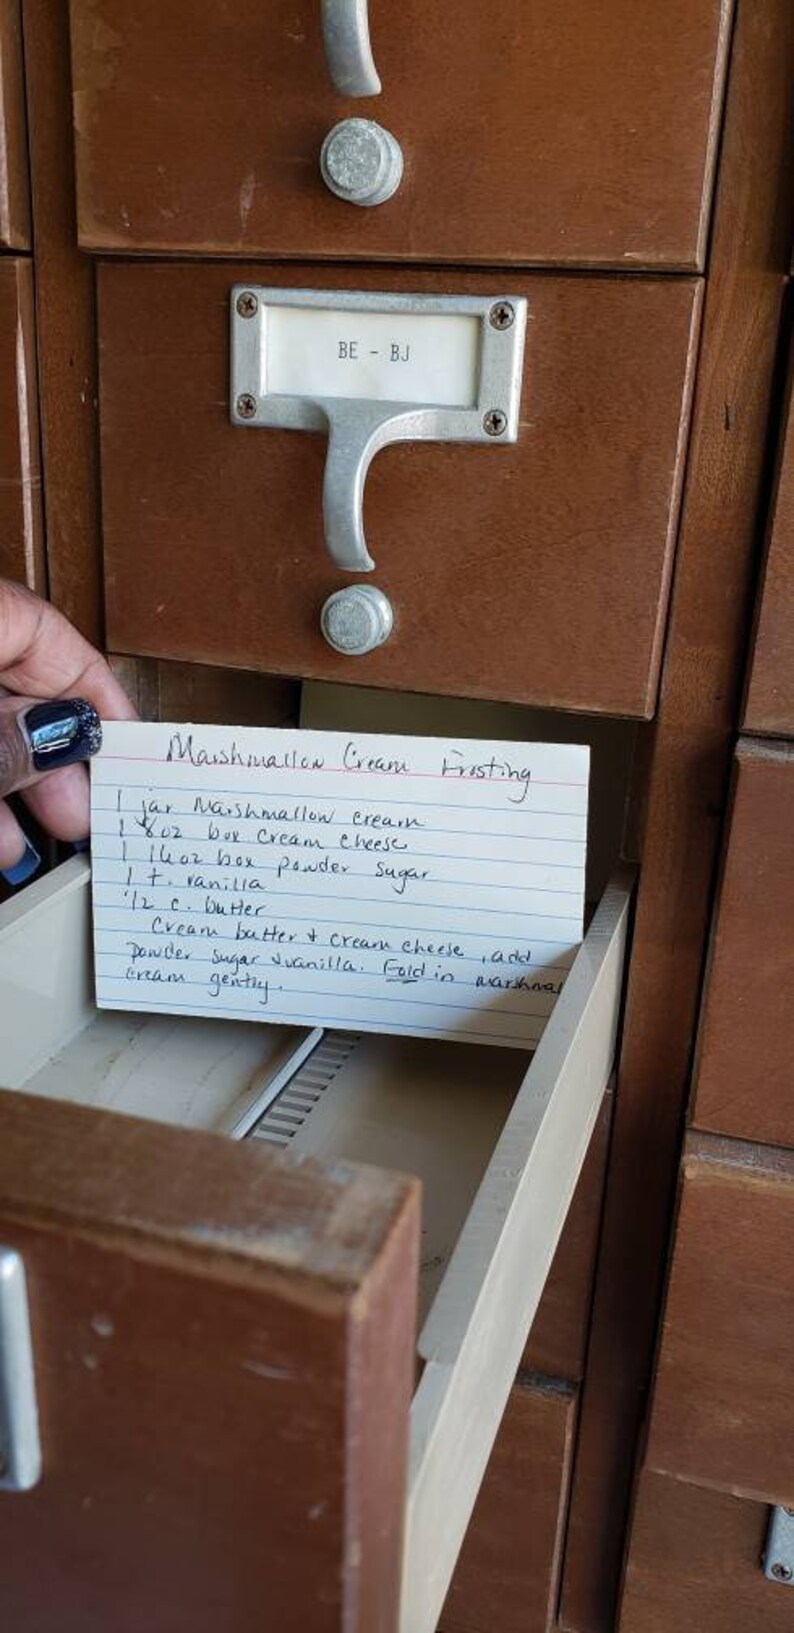 BE - BJ
Marshmallow Cream Frosting
1 jar Marshmallow cream
1 8oz box cream cheese
1 16oz box powder sugar
1 t. vanilla
1/2 c. butter
Cream butter + cream cheese, add
powder sugar + vanilla. Fold in marshmal
cream gently.